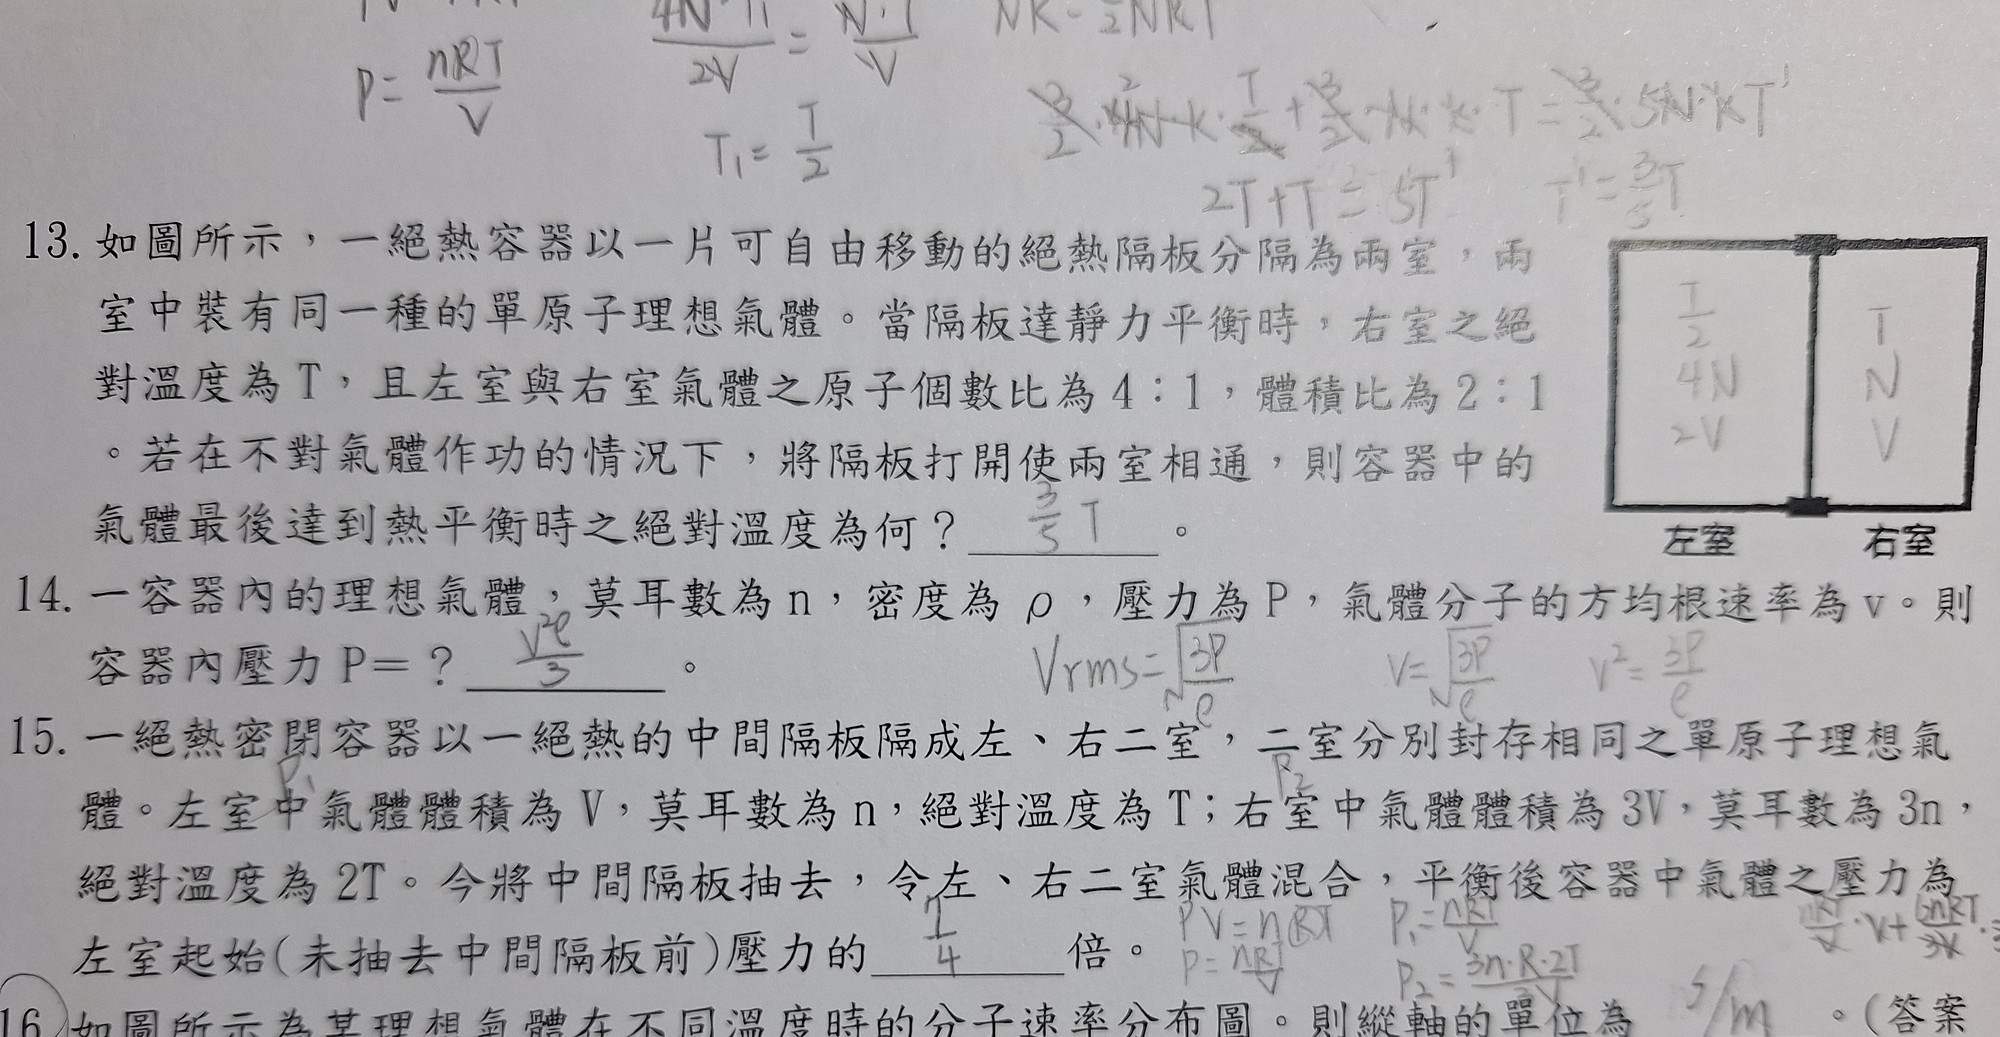 P = nRT/V
T₁ = T/2
3/2 · 4N · K · T/2 + 3/2 · N · K · T = 3/2 · 5N · KT'
2T + T = 5T'
T' = 3/5 T
13. 如圖所示，一絕熱容器以一片可自由移動的絕熱隔板分隔為兩室，兩
室中裝有同一種的單原子理想氣體。當隔板達靜力平衡時，右室之絕
對溫度為 T，且左室與右室氣體之原子個數比為 4：1，體積比為 2：1
。若在不對氣體作功的情況下，將隔板打開使兩室相通，則容器中的
氣體最後達到熱平衡時之絕對溫度為何？ 3/5 T 。
T/2
4N
2V
T
N
V
左室 右室
14. 一容器內的理想氣體，莫耳數為 n，密度為 ρ，壓力為 P，氣體分子的方均根速率為 v。則
容器內壓力 P＝？ v²ρ/3 。
Vrms = √(3P/ρ) V = √(3P/ρ) V² = 3P/ρ
15. 一絕熱密閉容器以一絕熱的中間隔板隔成左、右二室，二室分別封存相同之單原子理想氣
P₁ P₂
體。左室中氣體體積為 V，莫耳數為 n，絕對溫度為 T；右室中氣體體積為 3V，莫耳數為 3n，
絕對溫度為 2T。今將中間隔板抽去，令左、右二室氣體混合，平衡後容器中氣體之壓力為
左室起始(未抽去中間隔板前)壓力的 7/4 倍。
PV = nRT P₁ = nRT/V
P = nRT/V P₂ = 3n·R·2T/3V
16 如圖所示為某理想氣體在不同溫度時的分子速率分布圖。則縱軸的單位為 s/m 。(答案